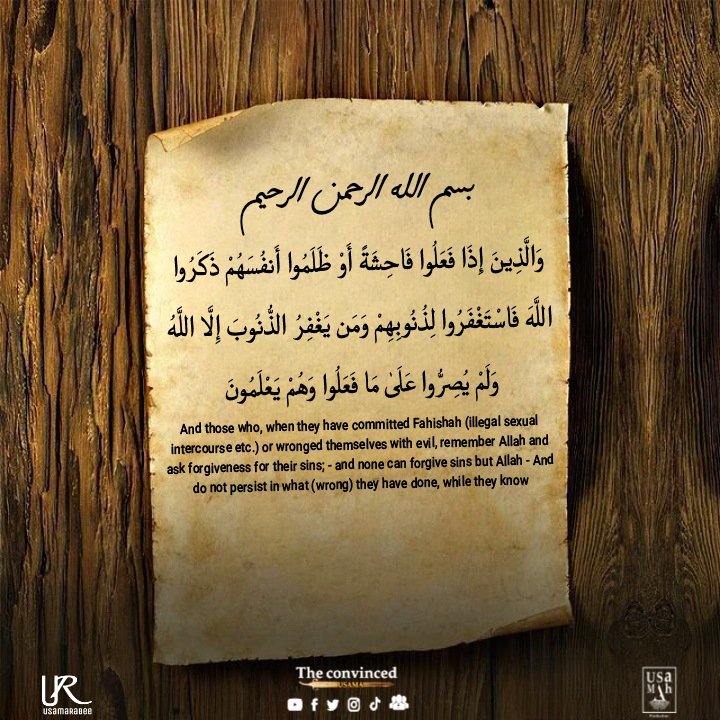 بسم الله الرحمن الرحيم
وَالَّذِينَ إِذَا فَعَلُوا فَاحِشَةً أَوْ ظَلَمُوا أَنفُسَهُمْ ذَكَرُوا
اللَّهَ فَاسْتَغْفَرُوا لِذُنُوبِهِمْ وَمَن يَغْفِرُ الذُّنُوبَ إِلَّا اللَّهُ
وَلَمْ يُصِرُّوا عَلَىٰ مَا فَعَلُوا وَهُمْ يَعْلَمُونَ
And those who, when they have committed Fahishah (illegal sexual
intercourse etc.) or wronged themselves with evil, remember Allah and
ask forgiveness for their sins; - and none can forgive sins but Allah - And
do not persist in what (wrong) they have done, while they know
UR
USAMARABEE
The convinced
USAMA
USA
MAH